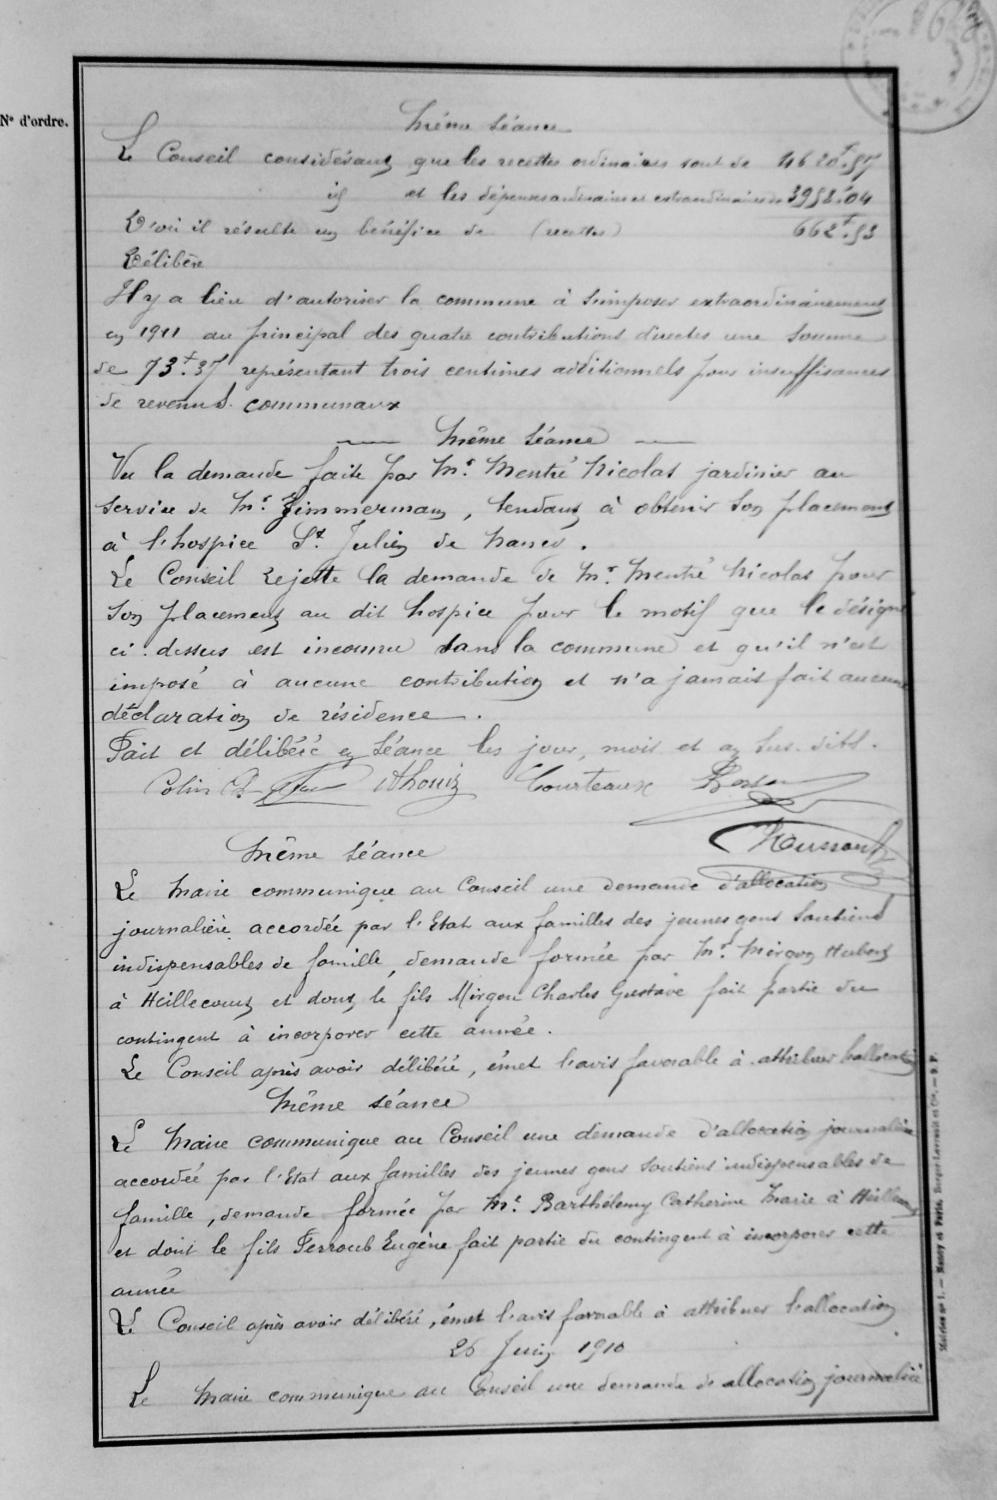 N° d'ordre.
Même séance
Le Conseil considérant que les recettes ordinaires sont de 4620f.57
id et les dépenses ordinaires et extraordinaires de 3958f.04
D'où il résulte un bénéfice de (recettes) 662f.53
Délibère
Il y a lieu d'autoriser la commune à s'imposer extraordinairement
en 1911 au principal des quatre contributions directes une somme
de 73f.37 représentant trois centimes additionnels pour insuffisances
de revenus communaux
Même séance
Vu la demande faite par Mr Mentré Nicolas jardinier au
service de Mr Zimmermann, tendant à obtenir son placement
à l'hospice St Julien de Nancy.
Le Conseil rejette la demande de Mr Mentré Nicolas pour
son placement au dit hospice pour le motif que le désigné
ci-dessus est inconnu dans la commune et qu'il n'est
imposé à aucune contribution et n'a jamais fait aucune
déclaration de résidence.
Fait et délibéré en séance les jour, mois et an sus-dits.
Colin Thouin Courteaux
Même séance
Le Maire communique au Conseil une demande d'allocation
journalière accordée par l'Etat aux familles des jeunes gens soutiens
indispensables de famille, demande formée par Mr Mirgon Hubert
à Heillecourt et dont le fils Mirgon Charles Gustave fait partie du
contingent à incorporer cette année.
Le Conseil après avoir délibéré, émet l'avis favorable à attribuer l'allocation
Même séance
Le Maire communique au Conseil une demande d'allocation journalière
accordée par l'Etat aux familles des jeunes gens soutiens indispensables de
famille, demande formée par Me Barthélemy Catherine Marie à Heillecourt
et dont le fils Ferroub Eugène fait partie du contingent à incorporer cette
année
Le Conseil après avoir délibéré, émet l'avis favorable à attribuer l'allocation
26 Juin 1910
Le Maire communique au Conseil une demande de allocation journalière